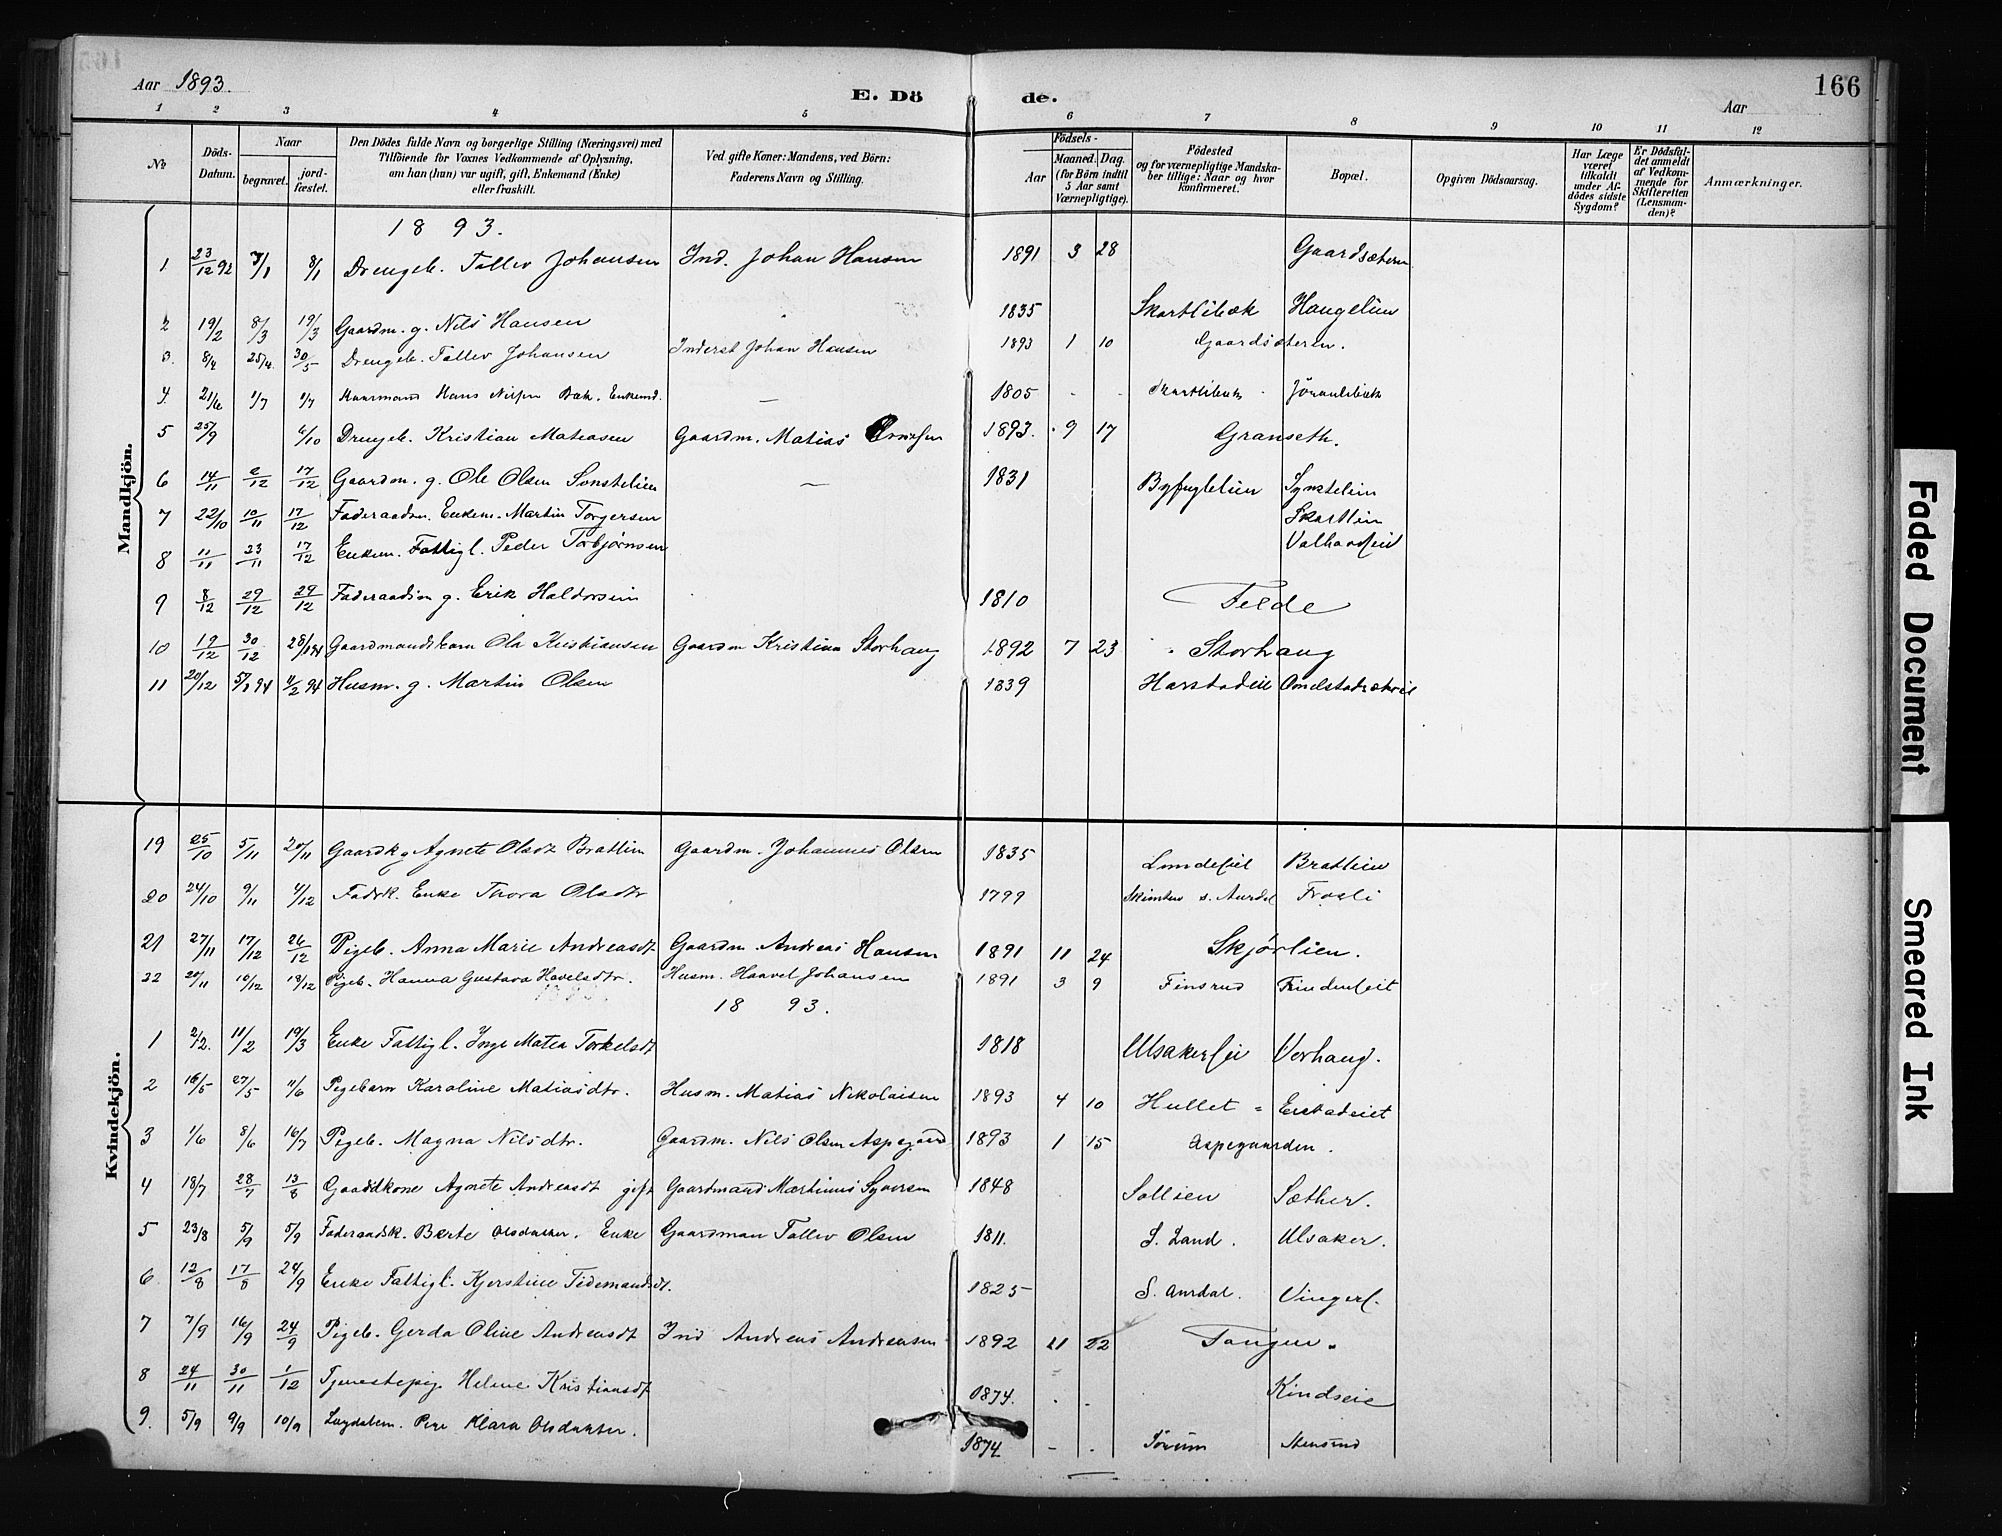 Aar 1893.
E. Dö de.
Aar
166
1 2 3 4 5 6 7 8 9 10 11 12
No
Döds-Datum.
Naar
begravet.
jord-fæstet.
Den Dödes fulde Navn og borgerlige Stilling (Næringsvei) med
Tilföiende for Voxnes Vedkommende af Oplysning,
om han (hun) var ugift, gift, Enkemand (Enke)
eller fraskilt.
Ved gifte Koner: Mandens, ved Börn:
Faderens Navn og Stilling.
Födsels-
Aar
Maaned.
Dag.
(for Börn indtil
5 Aar samt
Værnepligtige).
Födested
og for værnepligtige Mandska-
ber tillige: Naar og hvor
konfirmeret.
Bopæl.
Opgiven Dödsaarsag.
Har Læge
været
tilkaldt
under Af-
dödes sidste
Sygdom?
Er Dödsfal-
det anmeldt
af Vedkom-
mende for
Skifteretten
(Lensman-
den)?
Anmærkninger.
Mandkjön.
1893.
1 23/12 92 7/1 8/1 Drengeb. Tollev Johansen Ind. Johan Hansen 1891 3 28 Gaardsætern
2 19/2 8/3 19/3 Gaardm. g. Nils Hansen 1835 Skartlibæk Haugelien
3. 8/4 25/4 30/5 Drengeb. Tollev Johansen Inderst Johan Hansen 1893 1 10 Gaardsæteren.
4. 21/6 1/7 1/7 Hans Bæk. Enkemd. — 1805 - -
5 25/9 6/10 Drengeb. Kristian Mateasen Gaardm. Matias 1893. 9 17 Granseth.
6 14/11 2/12 17/12 Gaardm. g. Ole Olsen Sonstelien — 1831 Byfuglelien
7 22/10 10/11 17/12 Faderaadm. Enkem. Martin Torgersen Skartlien
8 11/11 23/11 17/12 Enkem. Fattigl. Peder Torbjørnsen
9 8/12 29/12 29/12 Faderaadm g. Erik Haldorsen 1810 Felde
10 19/12 30/12 28/1 94 Gaardmandsbarn Ole Kristiansen Gaardm Kristian Storhaug 1892 7 23 Storhaug
11 20/12 5/1 94 4/2 94 Husm. g. Martin Olsen 1839
Kvindekjön.
19 25/10 5/11 20/11 Gaardk. Agnete Olsdt Bratlien Gaardm. Johannes Olsen 1835 Bratlien
20 24/10 9/11 4/12 Fadrk. Enke Thora Olsdtr 1799 s. Aurdal
21 27/11 17/12 26/12 Pigeb. Anna Marie Andreasdt Gaardm. Andreas Hansen 1891 11 24 Skjørlien.
22 20/11 10/12 18/12 Pigeb. Hanna Gustava Havelsdtr. Husm. Haavel Johansen 1891 3 9 Finsrud
1893.
1 2/2. 11/2 19/3 Enke Fattigl. Inge Matea Torkelsdt 1818 Verhaug.
2 16/5 27/5 11/6 Pigebarn Karoline Matiasdtr. Husm. Matias Nikolaisen 1893 4 10 Hullet
3 1/6 8/6 16/7 Pigeb. Magna Nilsdtr. Gaardm. Nils Olsen Aspegaard 1893 1 15 Aspegaarden.
4 18/7 28/7 13/8 Gaardkone Agnete Andreasdt gift Gaardmand Martinus Syversen 1848 Sollien Sæther.
5 23/8 5/9 5/9 Faderaadsk. Berte Olsdatter. Enke Gaardman Tollev Olsen 1811. S. Land. Ulsaker.
6. 12/8 17/8 24/9 Enke Fattigl. Kjerstine Tidemandsdt. 1825 S. Aurdal.
7 7/9 16/9 24/9 Pigeb. Gerda Oline Andreasdt Ind Andreas Andreasen 1892 11 22 Tangen.
8 24/11 30/11 1/12 Tjenestepig Helene Kristiansdt 1874. Kindseie
9. 5/9 9/9 10/9 Pige Klara Olsdatter. 1874 - - Sørum
Faded Document
Smeared Ink